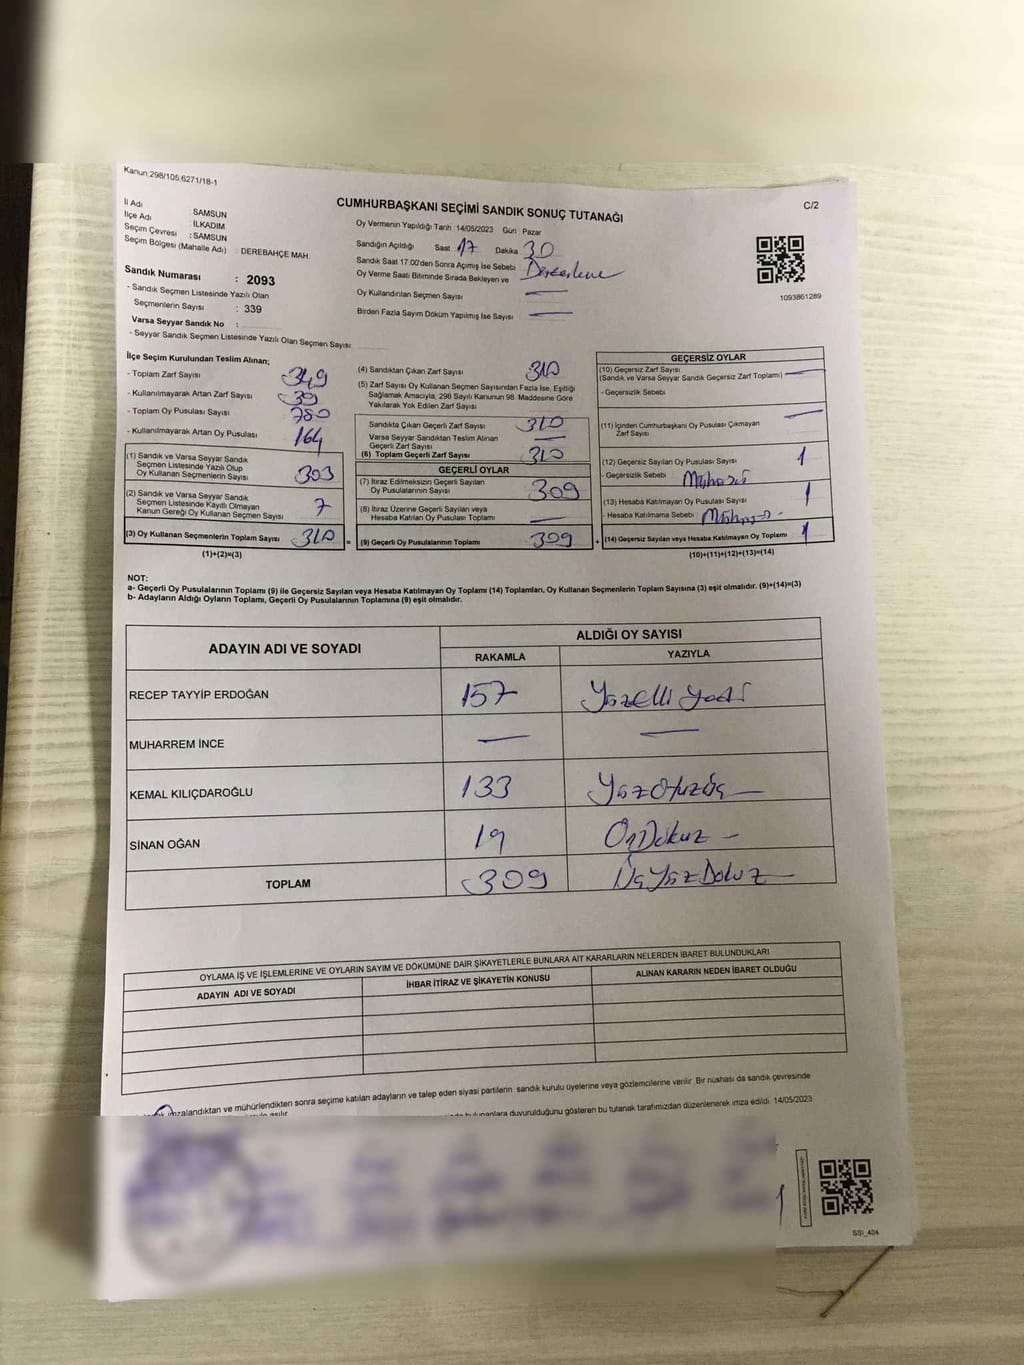 Kanun 298/105,6271/18-1
CUMHURBAŞKANI SEÇİMİ SANDIK SONUÇ TUTANAĞI
C/2
İl Adı : SAMSUN
İlçe Adı : İLKADIM
Seçim Çevresi : SAMSUN
Seçim Bölgesi (Mahalle Adı) : DEREBAHÇE MAH.
Sandık Numarası : 2093
- Sandık Seçmen Listesinde Yazılı Olan
Seçmenlerin Sayısı : 339
Varsa Seyyar Sandık No :
- Seyyar Sandık Seçmen Listesinde Yazılı Olan Seçmen Sayısı:
Oy Vermenin Yapıldığı Tarih :14/05/2023 Gün : Pazar
Sandığın Açıldığı Saat 17 Dakika 30
Sandık Saat 17.00'den Sonra Açımış İse Sebebi :
Oy Verme Saati Bitiminde Sırada Bekleyen ve
Oy Kullandırılan Seçmen Sayısı —
Birden Fazla Sayım Döküm Yapılmış İse Sayısı —
1093861289
İlçe Seçim Kurulundan Teslim Alınan;
- Toplam Zarf Sayısı 349
- Kullanılmayarak Artan Zarf Sayısı 39
- Toplam Oy Pusulası Sayısı 780
- Kullanılmayarak Artan Oy Pusulası 164
(1) Sandık ve Varsa Seyyar Sandık
Seçmen Listesinde Yazılı Olup
Oy Kullanan Seçmenlerin Sayısı 303
(2) Sandık ve Varsa Seyyar Sandık
Seçmen Listesinde Kayıtlı Olmayan
Kanun Gereği Oy Kullanan Seçmen Sayısı 7
(3) Oy Kullanan Seçmenlerin Toplam Sayısı 310
(1)+(2)=(3)
(4) Sandıktan Çıkan Zarf Sayısı 310
(5) Zarf Sayısı Oy Kullanan Seçmen Sayısından Fazla İse, Eşitliği
Sağlamak Amacıyla, 298 Sayılı Kanunun 98. Maddesine Göre
Yakılarak Yok Edilen Zarf Sayısı
Sandıkta Çıkan Geçerli Zarf Sayısı 310
Varsa Seyyar Sandıktan Teslim Alınan
Geçerli Zarf Sayısı —
(6) Toplam Geçerli Zarf Sayısı 310
GEÇERLİ OYLAR
(7) İtiraz Edilmeksizin Geçerli Sayılan
Oy Pusulalarının Sayısı 309
(8) İtiraz Üzerine Geçerli Sayılan veya
Hesaba Katılan Oy Pusulası Toplamı —
= (9) Geçerli Oy Pusulalarının Toplamı 309
GEÇERSİZ OYLAR
(10) Geçersiz Zarf Sayısı
(Sandık ve Varsa Seyyar Sandık Geçersiz Zarf Toplamı) —
- Geçersizlik Sebebi
(11) İçinden Cumhurbaşkanı Oy Pusulası Çıkmayan
Zarf Sayısı —
(12) Geçersiz Sayılan Oy Pusulası Sayısı 1
- Geçersizlik Sebebi
(13) Hesaba Katılmayan Oy Pusulası Sayısı 1
- Hesaba Katılmama Sebebi
+ (14) Geçersiz Sayılan veya Hesaba Katılmayan Oy Toplamı 1
(10)+(11)+(12)+(13)=(14)
NOT:
a- Geçerli Oy Pusulalarının Toplamı (9) ile Geçersiz Sayılan veya Hesaba Katılmayan Oy Toplamı (14) Toplamları, Oy Kullanan Seçmenlerin Toplam Sayısına (3) eşit olmalıdır. (9)+(14)=(3)
b- Adayların Aldığı Oyların Toplamı, Geçerli Oy Pusulalarının Toplamına (9) eşit olmalıdır.
ADAYIN ADI VE SOYADI ALDIĞI OY SAYISI
RAKAMLA YAZIYLA
RECEP TAYYİP ERDOĞAN 157 Yüzelli yedi
MUHARREM İNCE — —
KEMAL KILIÇDAROĞLU 133 YüzOtuzüç —
SİNAN OĞAN 19 OnDokuz —
TOPLAM 309 ÜçYüzDokuz —
OYLAMA İŞ VE İŞLEMLERİNE VE OYLARIN SAYIM VE DÖKÜMÜNE DAİR ŞİKAYETLERLE BUNLARA AİT KARARLARIN NELERDEN İBARET BULUNDUKLARI
ADAYIN ADI VE SOYADI İHBAR İTİRAZ VE ŞİKAYETİN KONUSU ALINAN KARARIN NEDEN İBARET OLDUĞU
imzalandıktan ve mühürlendikten sonra seçime katılan adayların ve talep eden siyasi partilerin sandık kurulu üyelerine veya gözlemcilerine verilir. Bir nüshası da sandık çevresinde
duyurulduğunu gösteren bu tutanak tarafımızdan düzenlenerek imza edildi. 14/05/2023
SSI_404